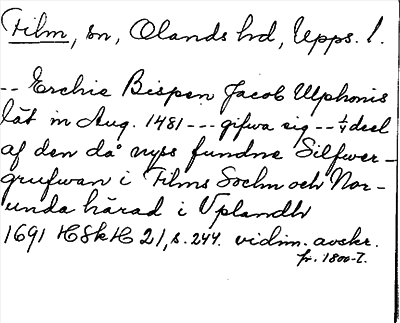 Film, sn, Olands hd, Upps. l.
-- Erchie Bispen Jacob Ulphonis
lät in Aug. 1481 --- gifwa sig -- 1/4 deel
af den då nyss fundne Silfwer-
grufwan i Films Sochn och Nor-
unda härad i Uplandh
1691 HSkH 21, s. 244. vidim. avskr.
fr. 1800-t.